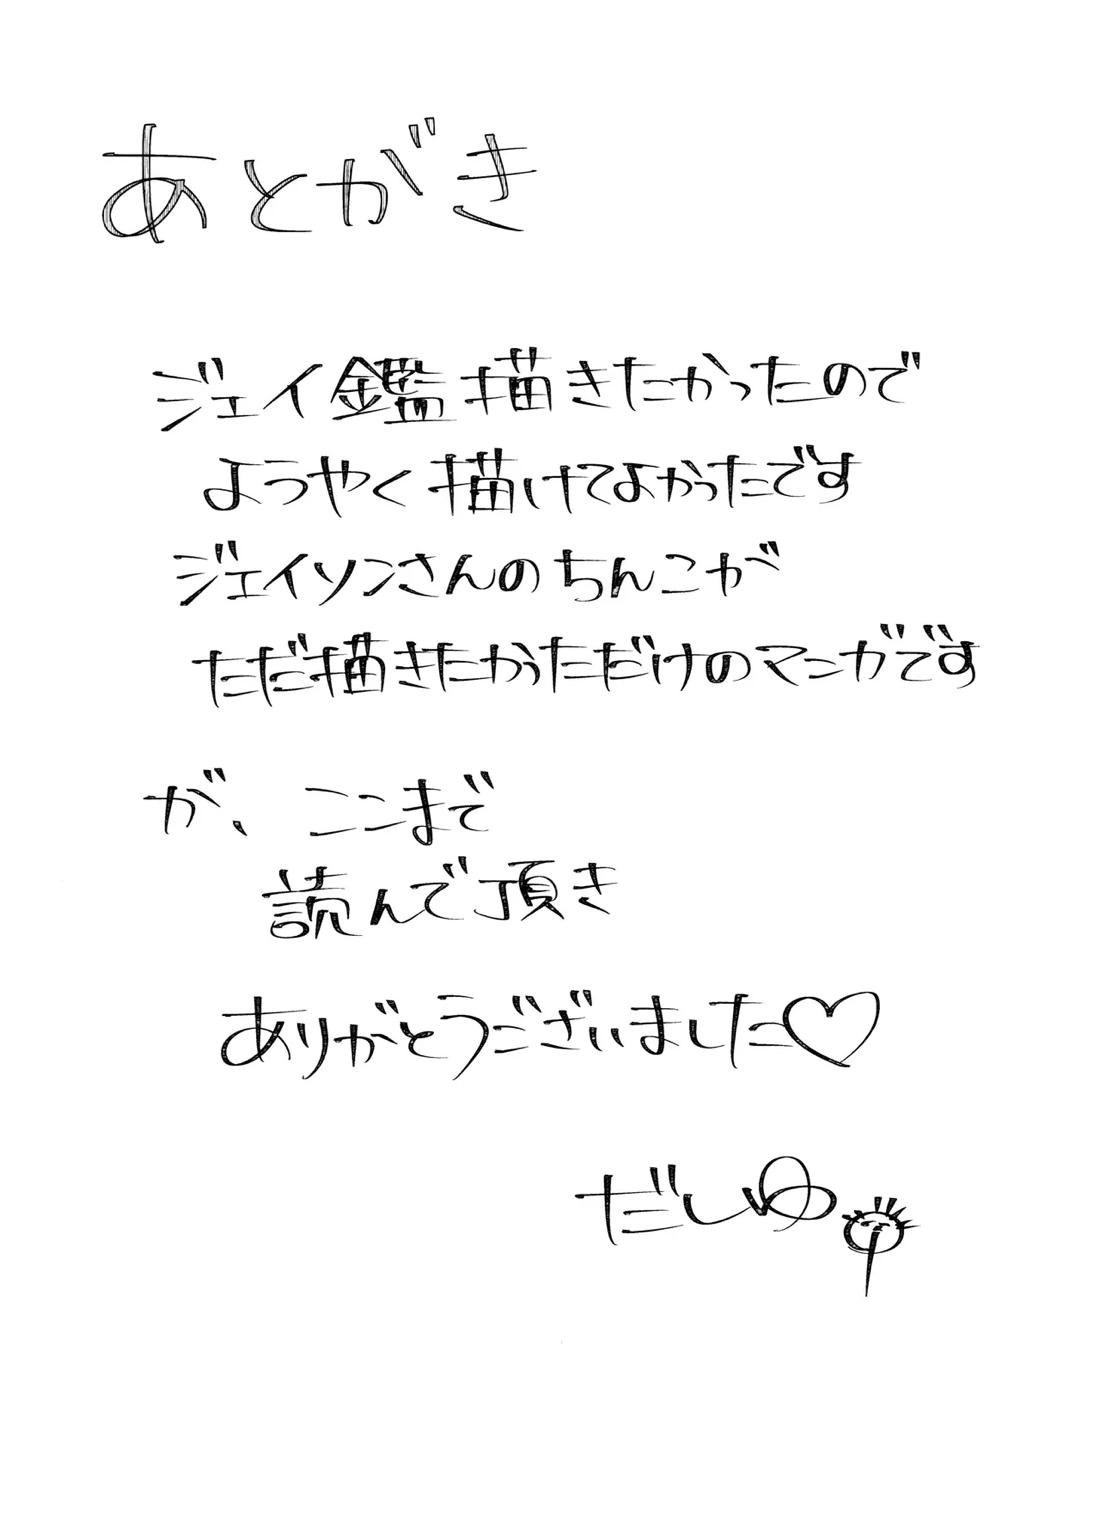 あとがき
ジェイ鑑描きたかったので
ようやく描けてよかったです
ジェイソンさんのちんこが
ただ描きたかっただけのマンガです
が、ここまで
読んで頂き
ありがとうございました♡
だしゆ